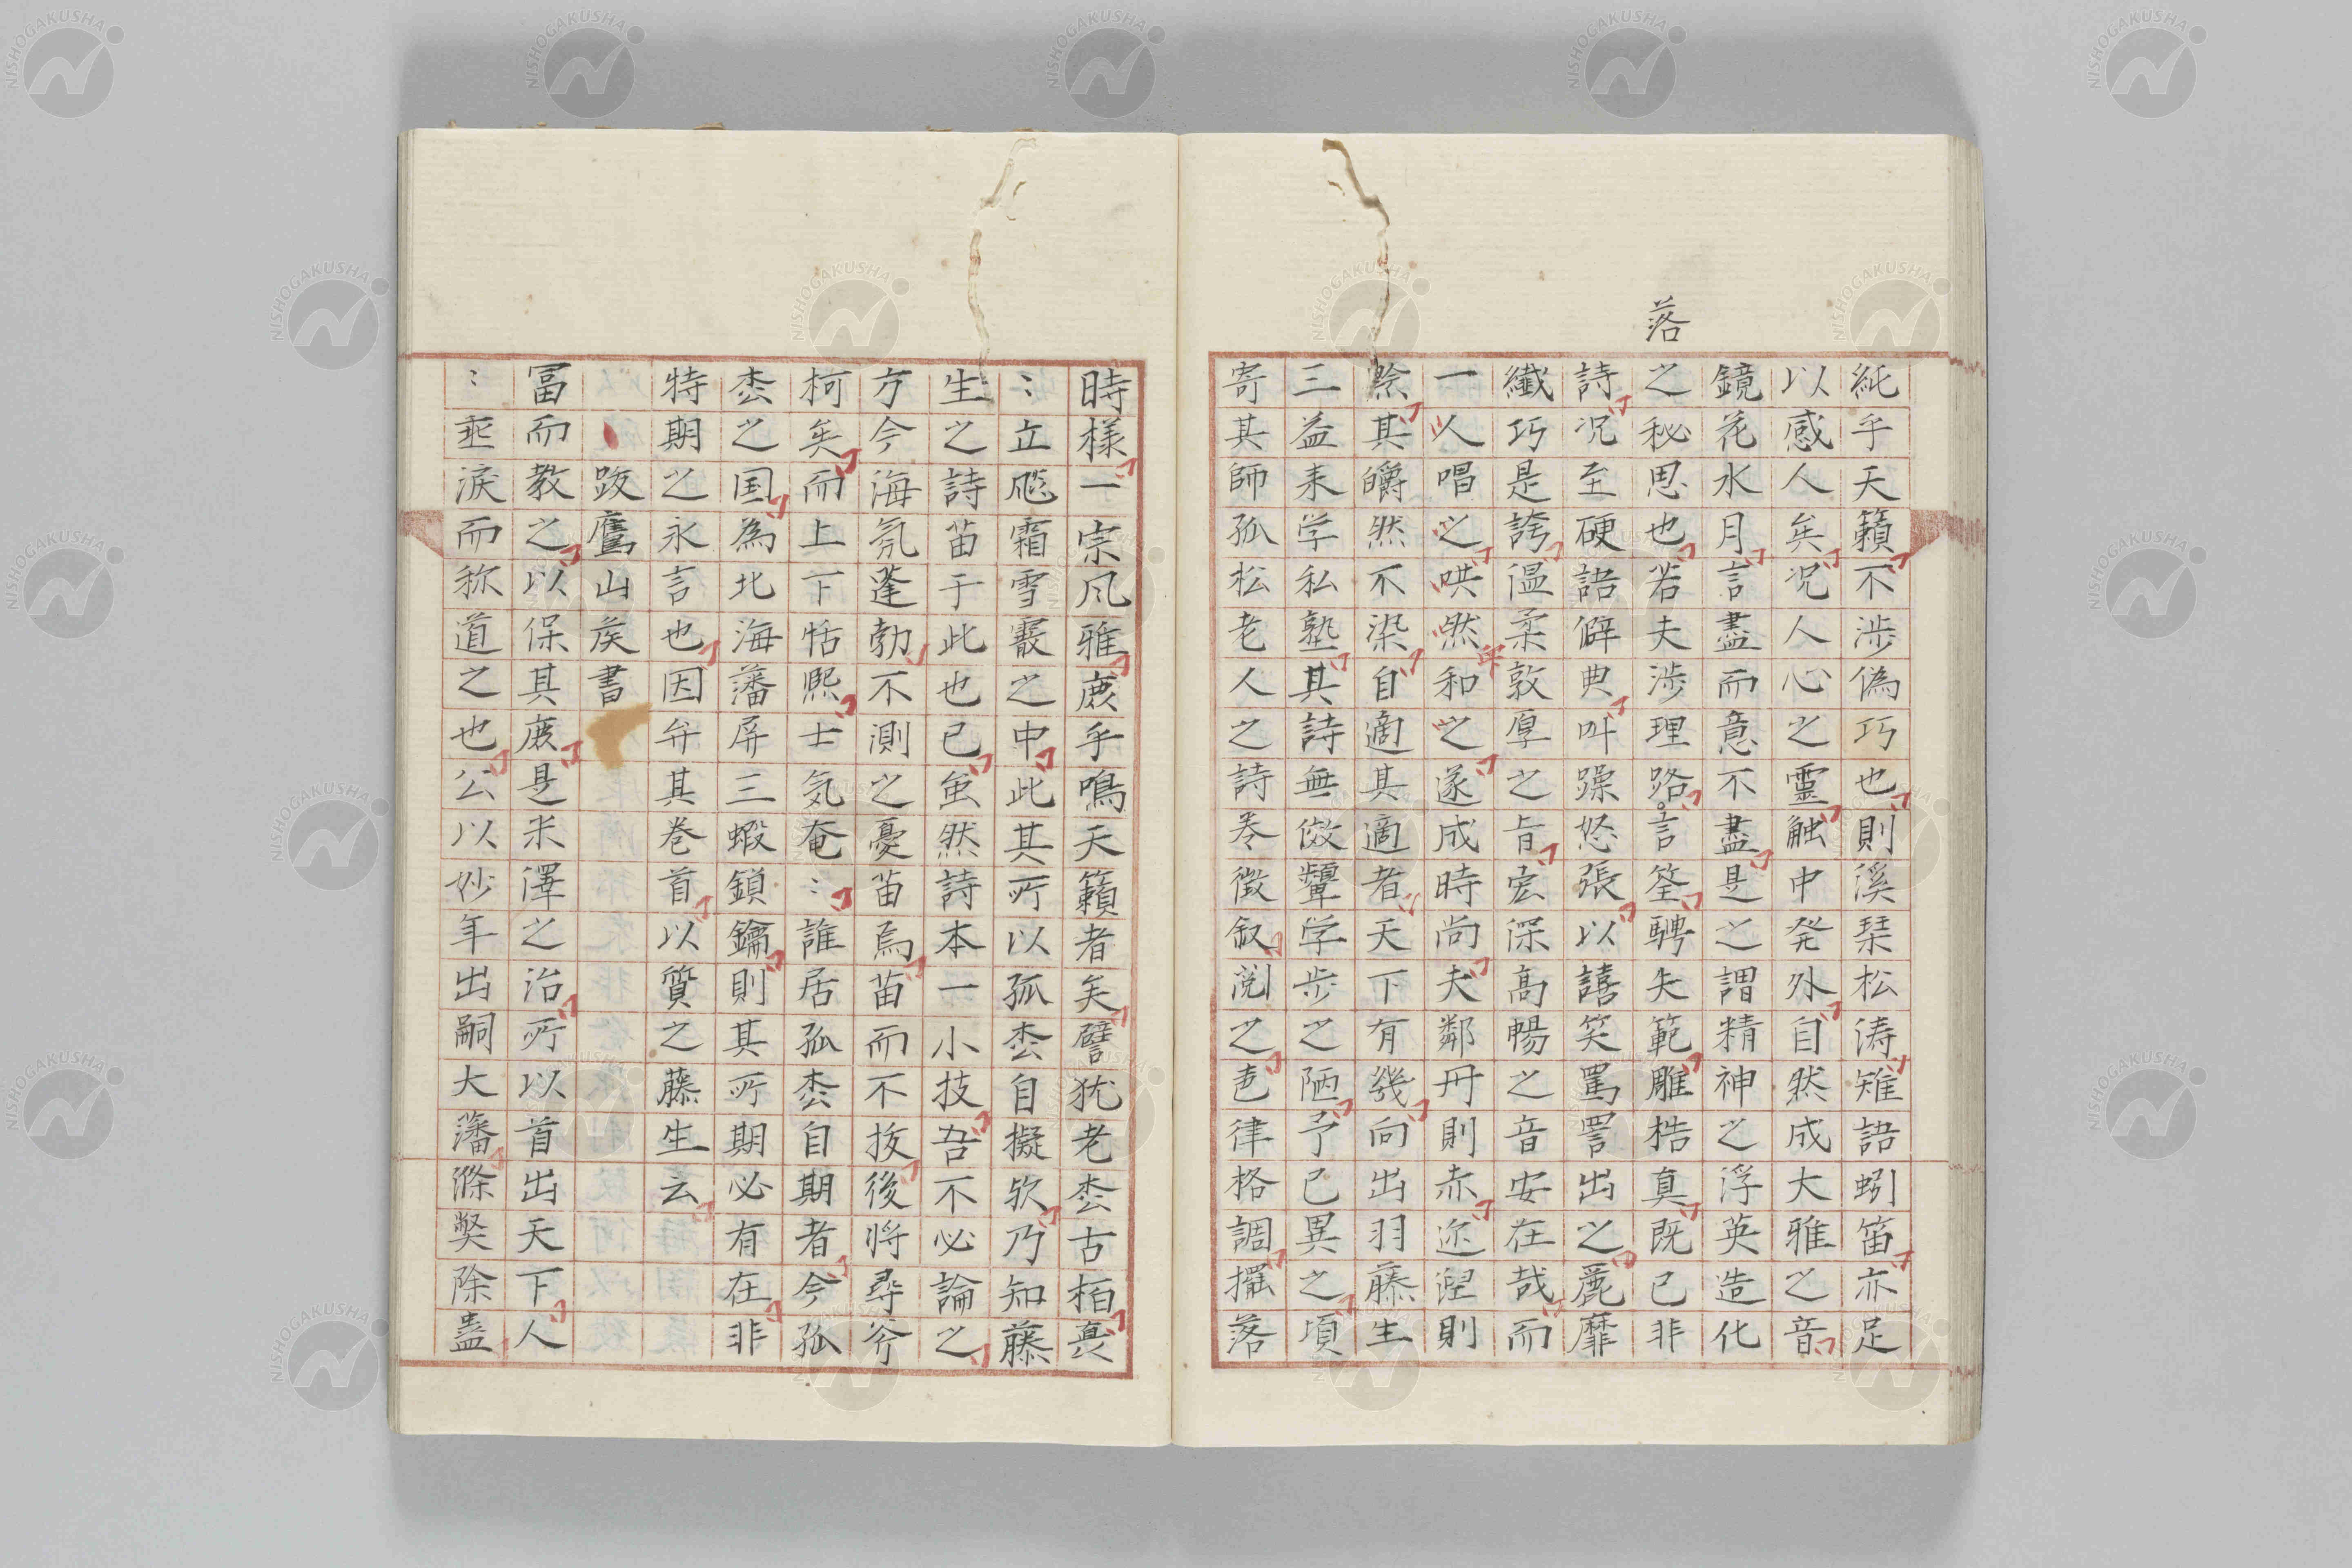 落
純乎天籟不渉偽巧也則溪琹松涛雉語蚓笛亦足
以感人矣况人心之霊触中発外自然成大雅之音
鏡花水月言盡而意不盡是之謂精神之浮英造化
之秘思也若夫渉理路言筌騁失範雕梏真既已非
詩况至硬語僻典叫躁怒張以譆笑罵詈出之麗靡
纖巧是誇温柔敦厚之旨宏深高暢之音安在哉而
一人唱之哄然和之遂成時尚夫鄰丹則赤迩涅則
黔其皭然不染自適其適者天下有幾向出羽藤生
三益来学私塾其詩無傚顰学歩之陋予已異之頃
寄其師孤松老人之詩巻徴叙閲之芭律格調擺落
時様一宗風雅庶乎鳴天籟者矣譬犹老枩古栢喪
〻立颷霜雪霰之中此其所以孤枩自擬欤乃知藤
生之詩苗于此也已虽然詩本一小技吾不必論之
方今海氛蓬勃不測之憂苗焉苗而不抜後将尋斧
柯矣而上下恬熈士気奄〻誰居孤枩自期者今孤
枩之国為北海藩屏三蝦鎖鑰則其所期必有在非
特期之永言也因弁其巻首以質之藤生云
跋鷹山矦書
冨而教之以保其庶是米澤之治所以首出天下人
〻垂淚而称道之也公以妙年出嗣大藩滌獘除蠧